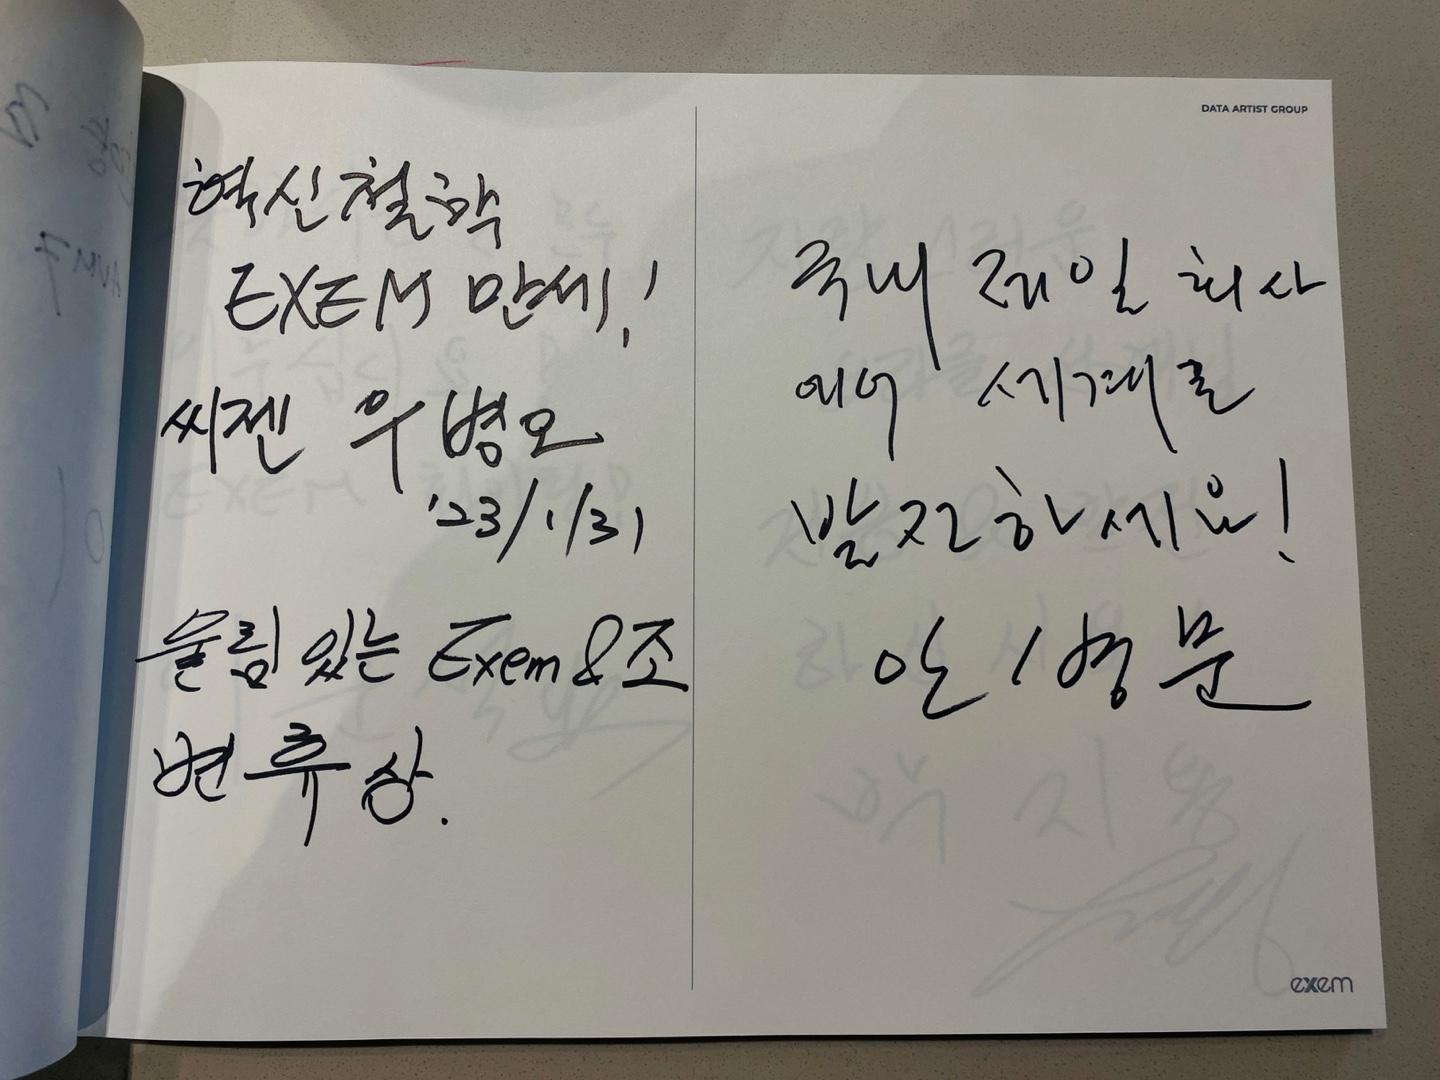 혁신철학
EXEM 만세!
씨젠 우병오
'23/1/31
울림 있는 Exem & 조
변휴상.
DATA ARTIST GROUP
국내 제일 회사
세계로
발전하세요!
안병문
exem